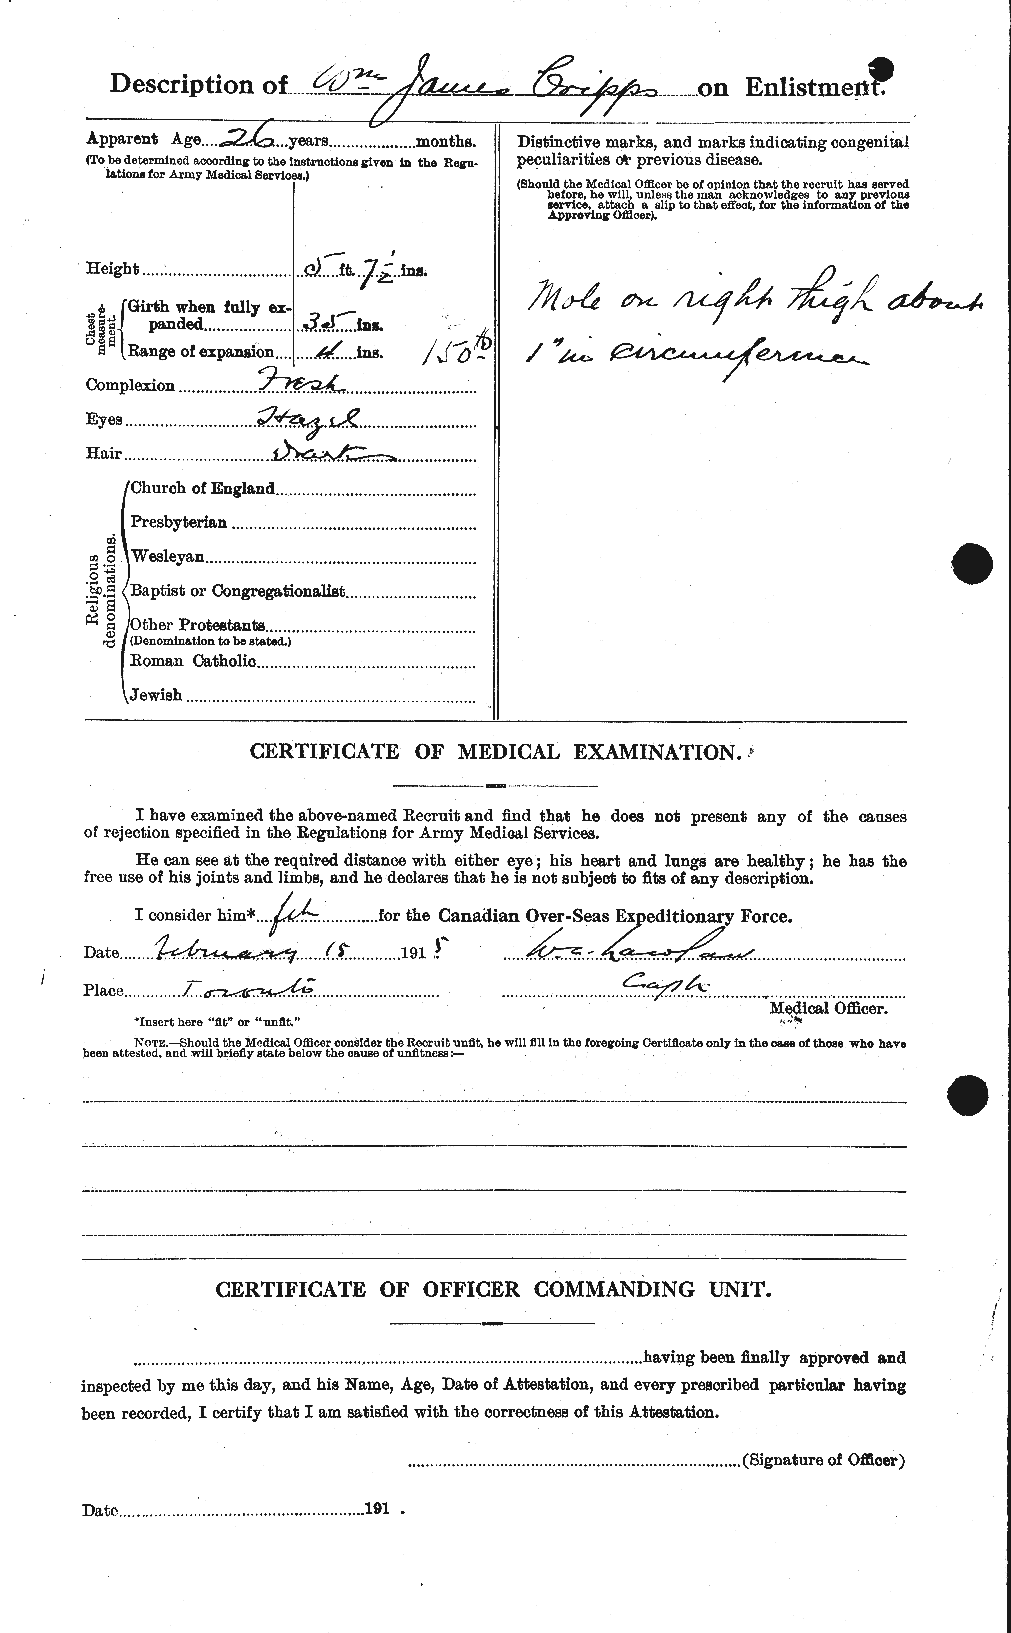 Description of Wm James Cripps on Enlistment.
Apparent Age....26....years..................months.
(To be determined according to the instructions given in the Regu-
lations for Army Medical Services.)
Height.................5...ft...7½...ins.
Chest measure-ment.
Girth when fully ex-
panded..................35....ins.
Range of expansion.......4....ins.
150 lb
Complexion..............Fresh..............
Eyes..............Hazel..............
Hair..............Dark..............
Religious denominations.
Church of England..............
Presbyterian..............
Wesleyan..............
Baptist or Congregationalist..............
Other Protestants..............
(Denomination to be stated.)
Roman Catholic..............
Jewish..............
Distinctive marks, and marks indicating congenital
peculiarities or previous disease.
(Should the Medical Officer be of opinion that the recruit has served
before, he will, unless the man acknowledges to any previous
service, attach a slip to that effect, for the information of the
Approving Officer).
Mole on right thigh about
1" in circumference
CERTIFICATE OF MEDICAL EXAMINATION.
I have examined the above-named Recruit and find that he does not present any of the causes
of rejection specified in the Regulations for Army Medical Services.
He can see at the required distance with either eye; his heart and lungs are healthy; he has the
free use of his joints and limbs, and he declares that he is not subject to fits of any description.
I consider him*....fit..............for the Canadian Over-Seas Expeditionary Force.
Date......February 15..........1915
Place..........Toronto
Capt.
Medical Officer.
*Insert here "fit" or "unfit."
NOTE.—Should the Medical Officer consider the Recruit unfit, he will fill in the foregoing Certificate only in the case of those who have
been attested, and will briefly state below the cause of unfitness:—
CERTIFICATE OF OFFICER COMMANDING UNIT.
..............having been finally approved and
inspected by me this day, and his Name, Age, Date of Attestation, and every prescribed particular having
been recorded, I certify that I am satisfied with the correctness of this Attestation.
..............(Signature of Officer)
Date..............191 .